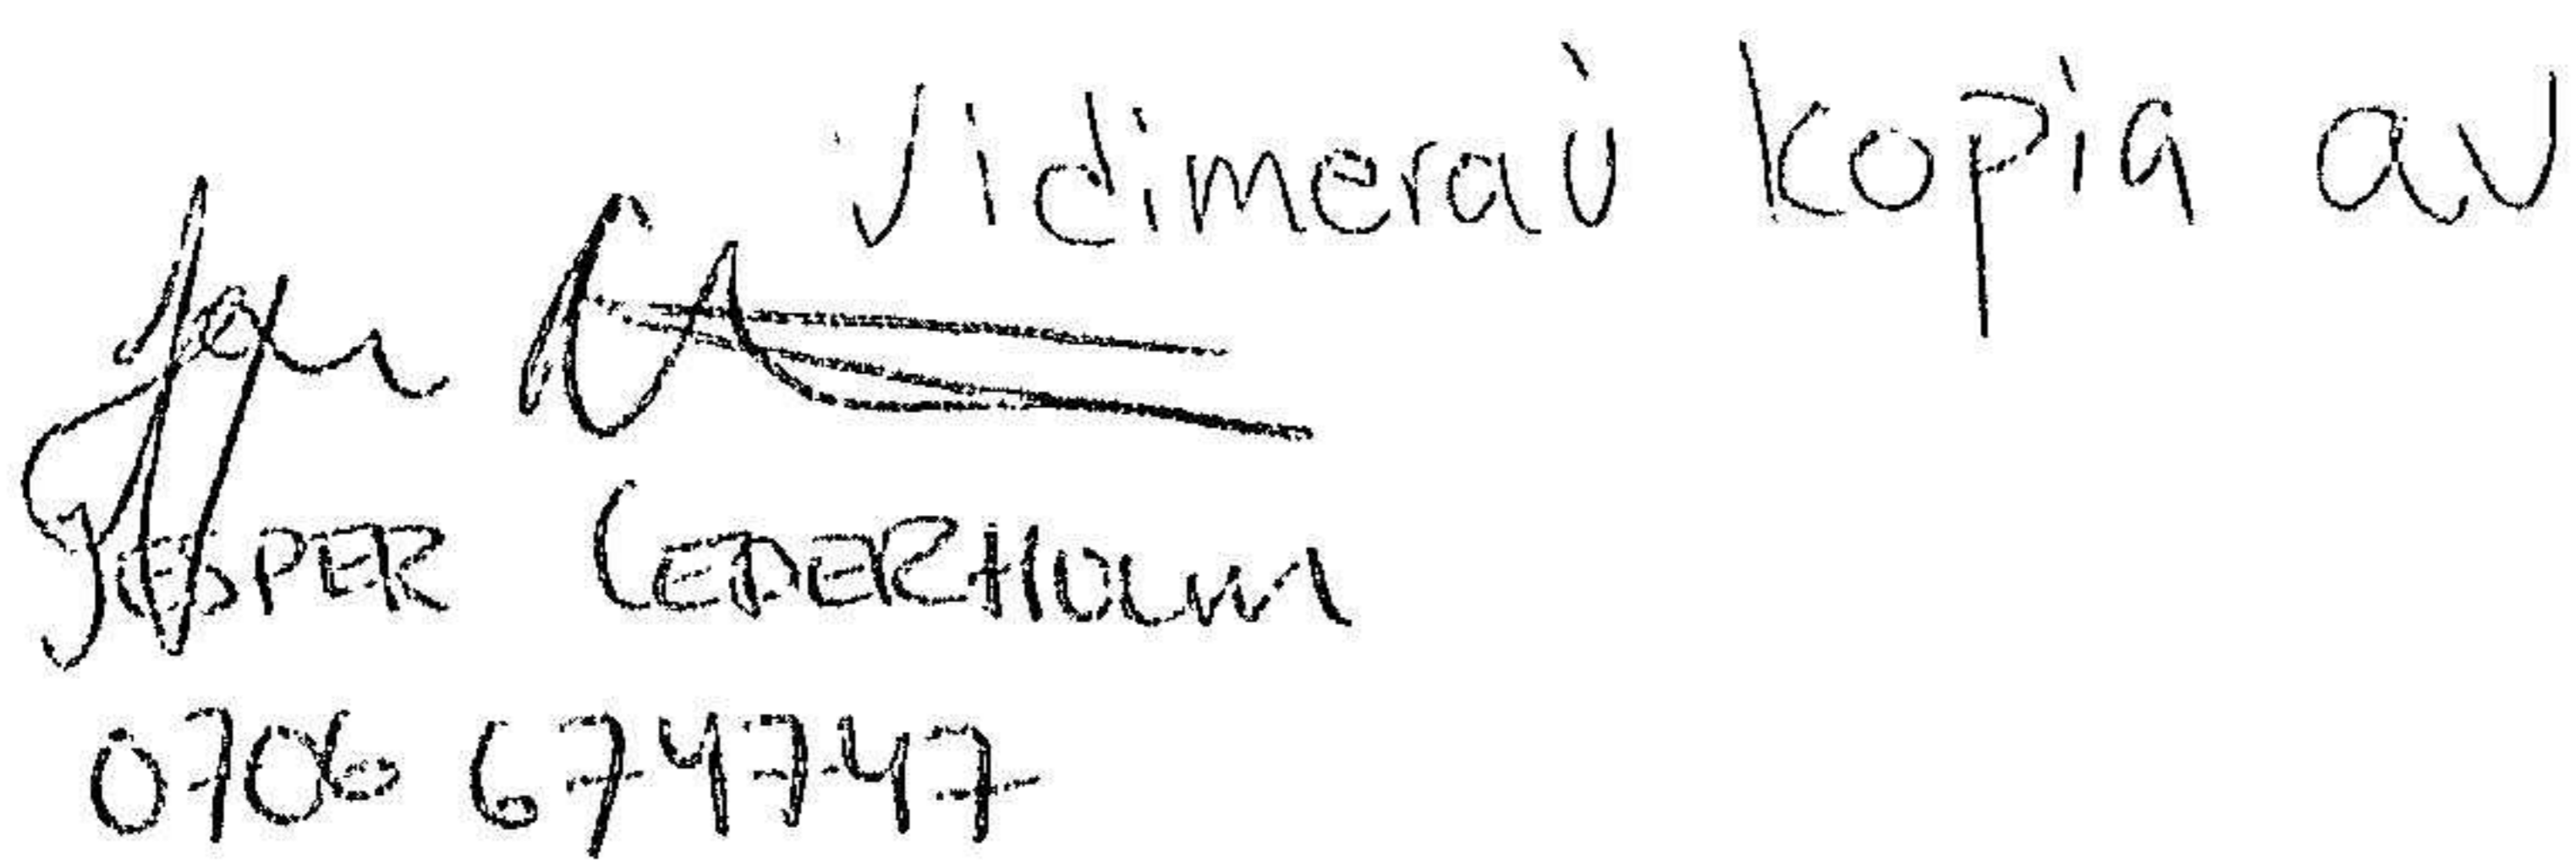 Vidimerad kopia av
JESPER CEDERHOLM
0706 674747